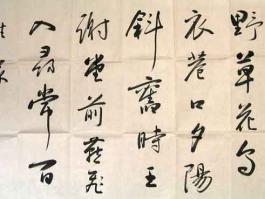 野草花烏
衣巷口夕陽
斜舊時王
謝堂前燕飛
入尋常百